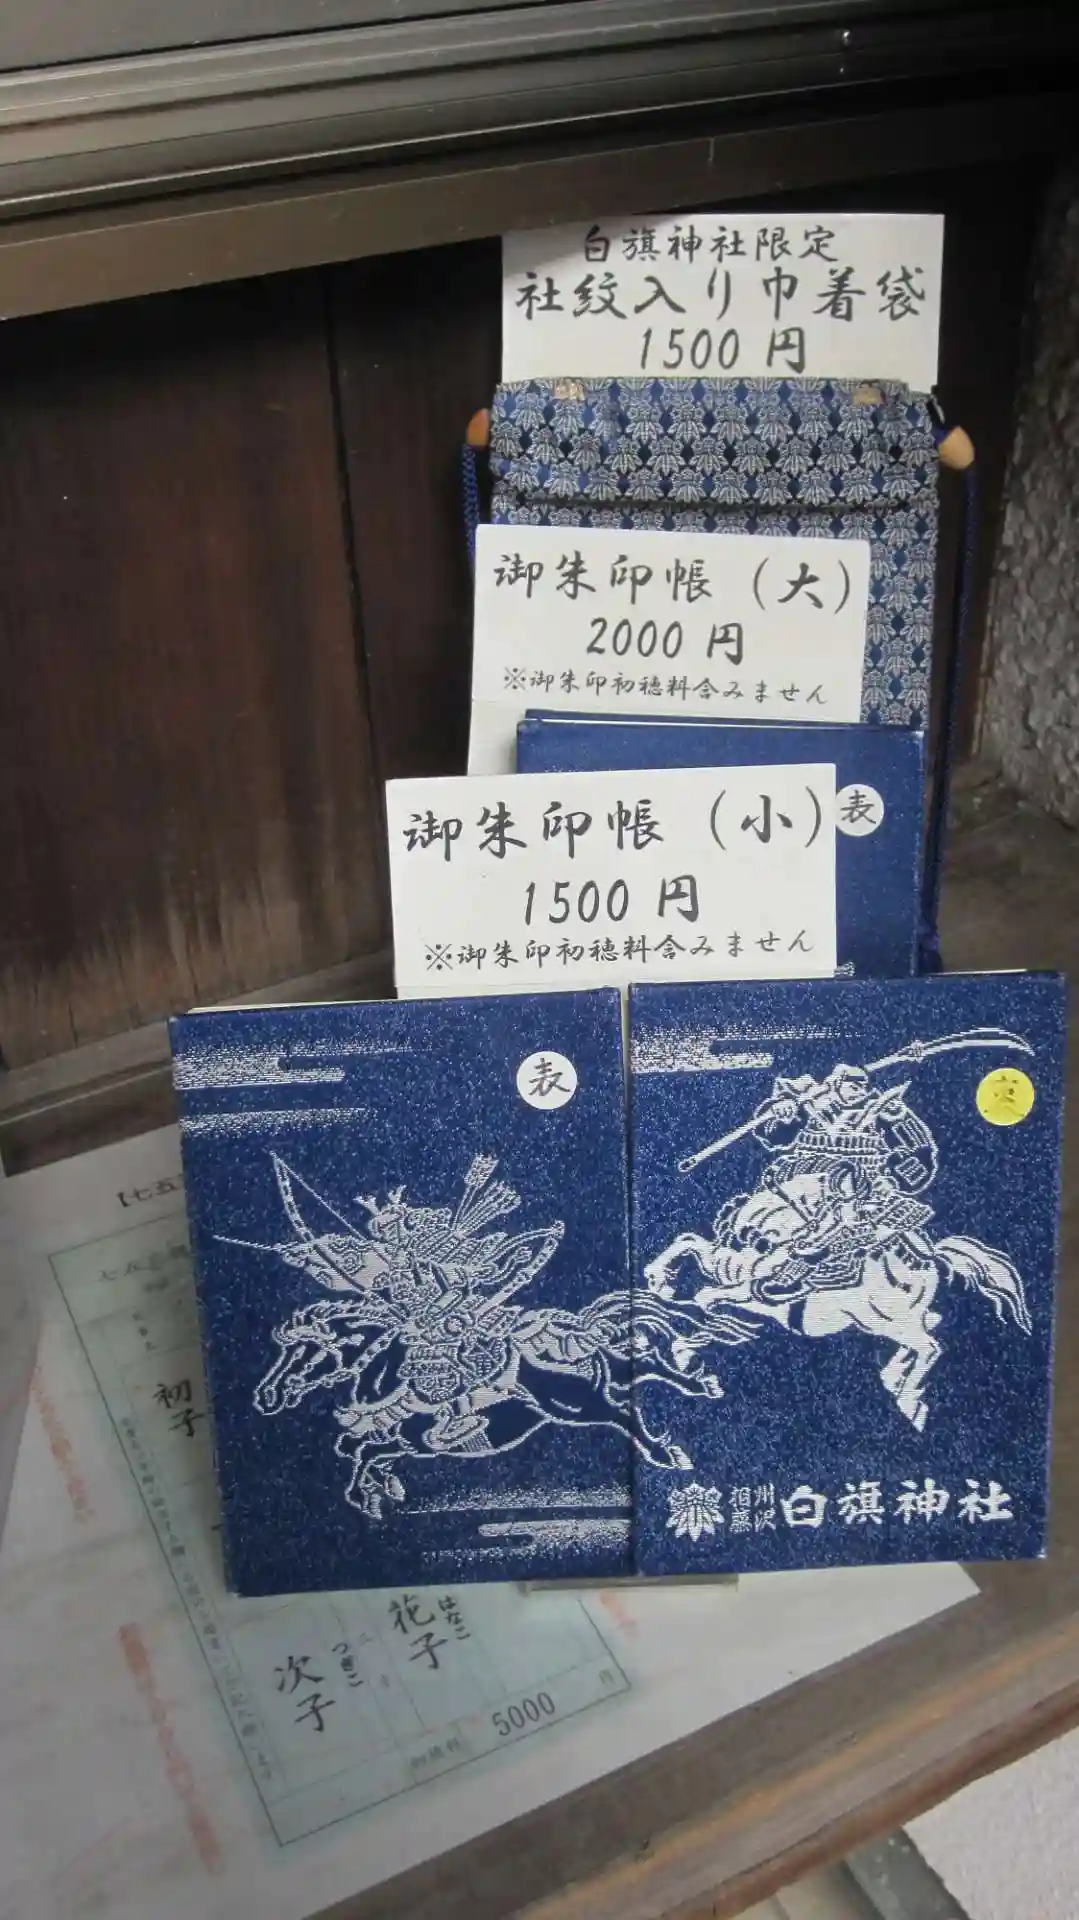 白旗神社限定
社紋入り巾着袋
1500円
御朱印帳（大）
2000円
※御朱印初穂料含みません
御朱印帳（小）
1500円
※御朱印初穂料含みません
表
表
相州
藤沢
白旗神社
【七五
初子
花子
はなこ
次子
つぎこ
5000
円